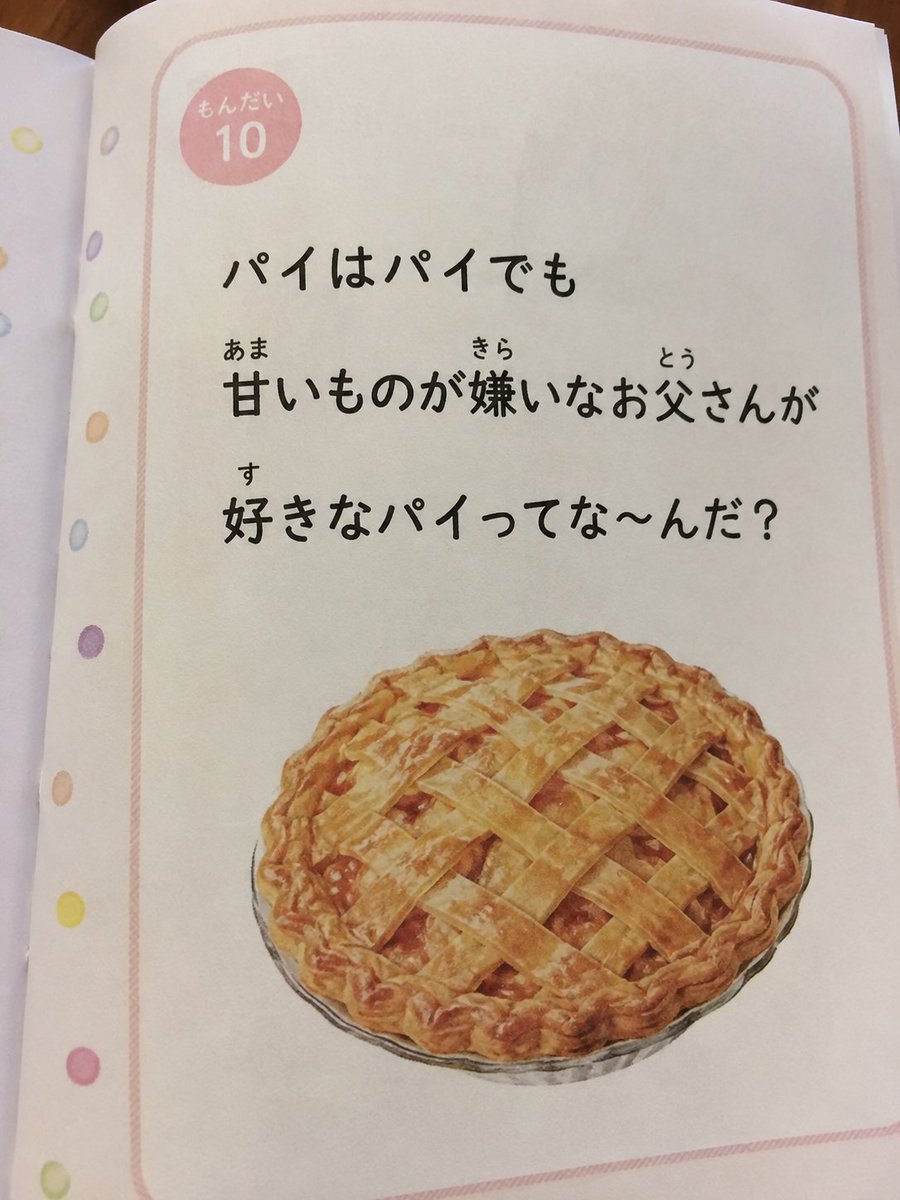 もんだい
10
パイはパイでも
あま きら とう
甘いものが嫌いなお父さんが
す
好きなパイってな〜んだ?